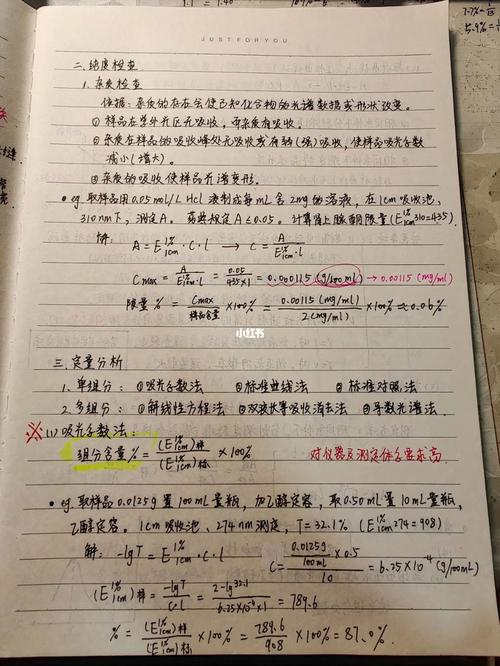 7.7%
5.9%
JUST FOR YOU
二.纯度检查
1.杂质检查
依据：杂质的存在会使已知化合物的光谱数据或形状改变。
①样品在紫外光区无吸收，而杂质有吸收。
②杂质在样品的吸收峰处无吸收或有弱(强)吸收，使样品吸光系数
减小(增大)。
③杂质的吸收使样品光谱变形.
• eg. 取样品用0.05mol/L HCl 液制成每mL含2mg的溶液，在1cm吸收池、
310nm下，测定A。药典规定A≤0.05。计算肾上腺酮限量(E1%1cm310=435).
解: A=E1%1cm·C·l → C=A/E1%1cm·l
Cmax=A/E1%1cm·l=0.05/435×1=0.000115(g/100ml)→0.00115(mg/ml)
限量%=Cmax/样品含量×100%=0.00115(mg/ml)/2(mg/ml)×100%≈0.06%
小红书
三.定量分析
1.单组分：①吸光系数法 ②标准曲线法 ③标准对照法
2.多组分：①解线性方程法 ②双波长等吸收消去法 ③导数光谱法.
※(1)吸光系数法：
组分含量%=(E1%1cm)样/(E1%1cm)标×100%
对仪器及测定条件要求高.
• eg. 取样品0.0125g置100mL量瓶，加乙醇定容，取0.50mL置10mL量瓶，
乙醇定容。1cm吸收池、274nm测定，T=32.1% (E1%1cm274=908)
解: -lgT=E1%1cm·C·l C=0.0125g/100ml×0.5/10=6.25×10⁻⁴(g/100mL)
(E1%1cm)样=-lgT/C·l=2-lg32.1/6.25×10⁻⁴×1=789.6
%=(E1%1cm)样/(E1%1cm)标×100%=789.6/908×100%=87.0%.